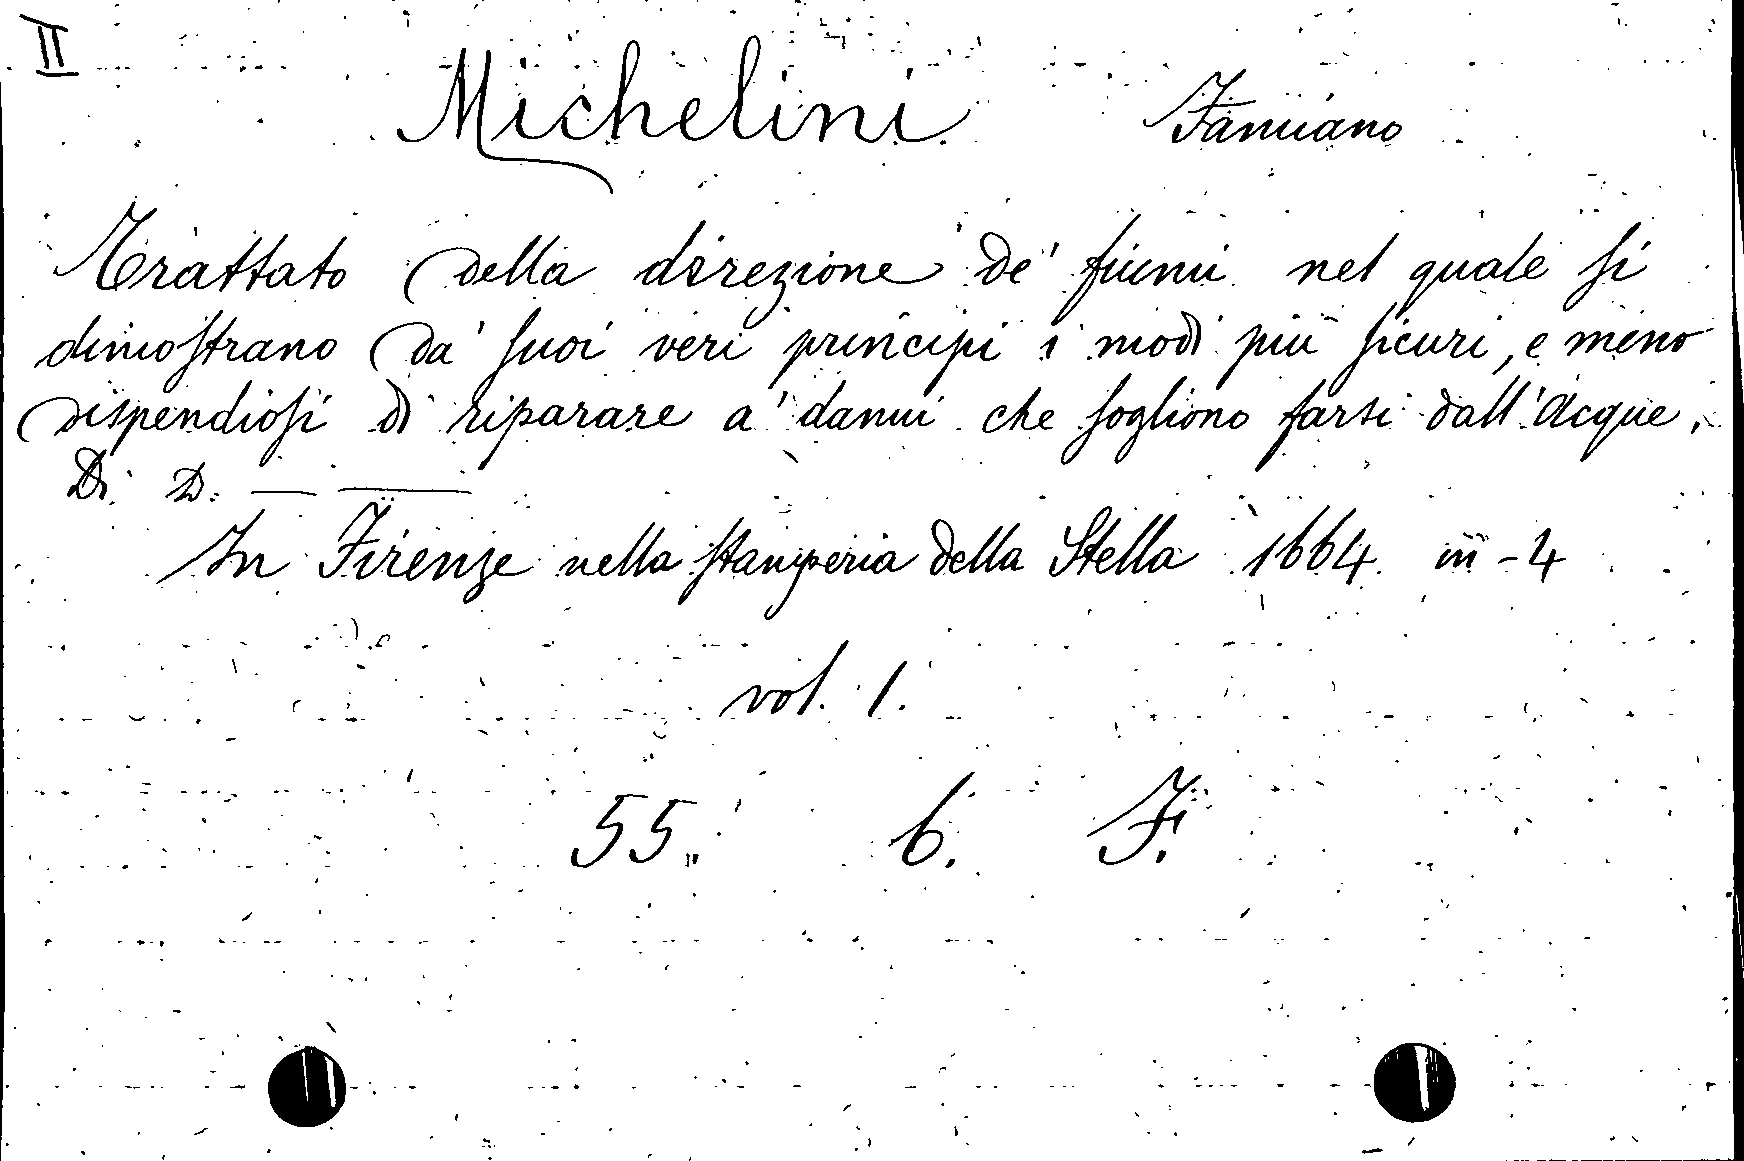 II
Michelini Famiano
Trattato della direzione de' fiumi nel quale si
dimostrano da' suoi veri principi i modi più sicuri, e meno
dispendiosi di riparare a' danni che sogliono farsi dall'Acque.
Di D. — —
In Firenze nella stamperia della Stella 1664 in-4
vol. 1.
55. 6. F.